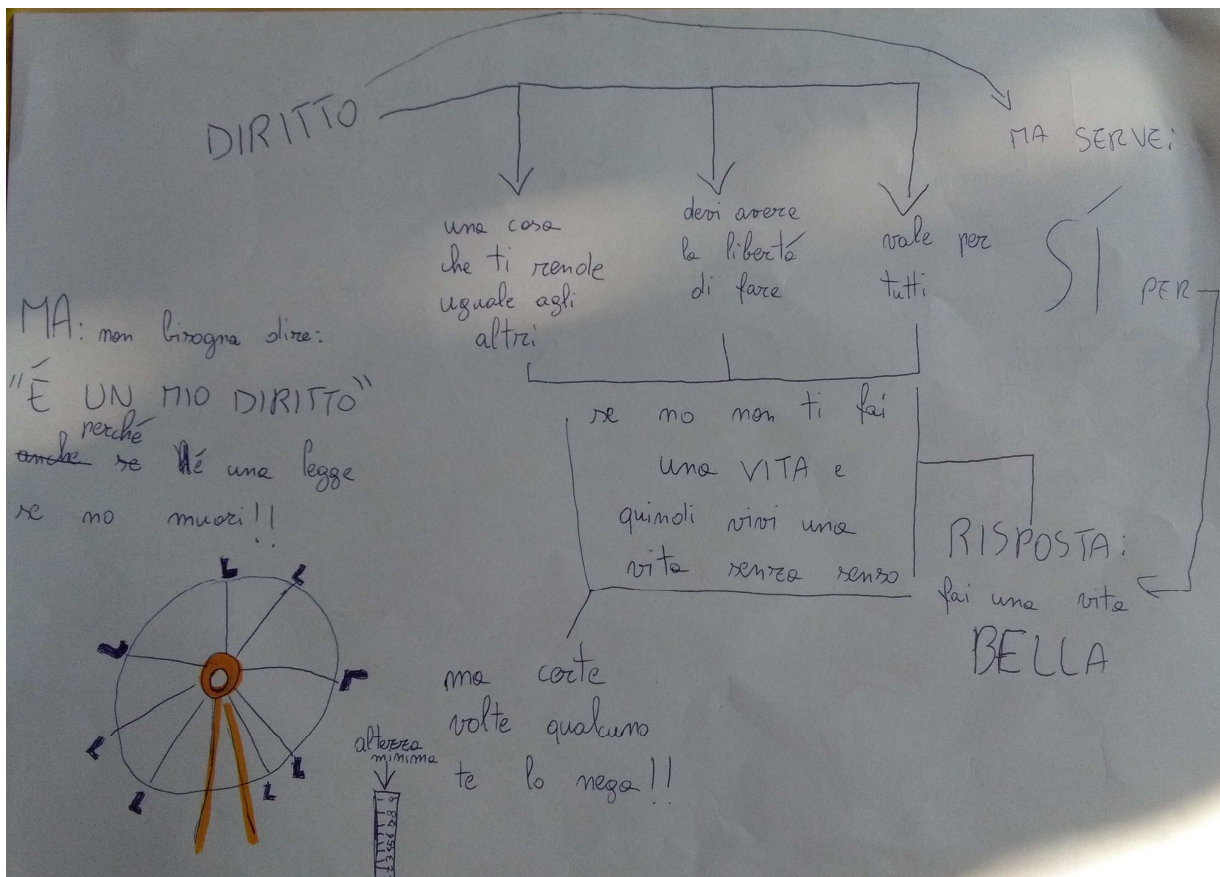 DIRITTO
MA SERVE:
SÍ
PER
una cosa
che ti rende
uguale agli
altri
devi avere
la libertá
di fare
vale per
tutti
MA: non bisogna dire:
"É UN MIO DIRITTO"
perché
anche se é una legge
se no muori!!
se no non ti fai
una VITA e
quindi vivi una
vita senza senso
RISPOSTA:
fai una vita
BELLA
ma certe
volte qualcuno
te lo nega!!
altezza
minima